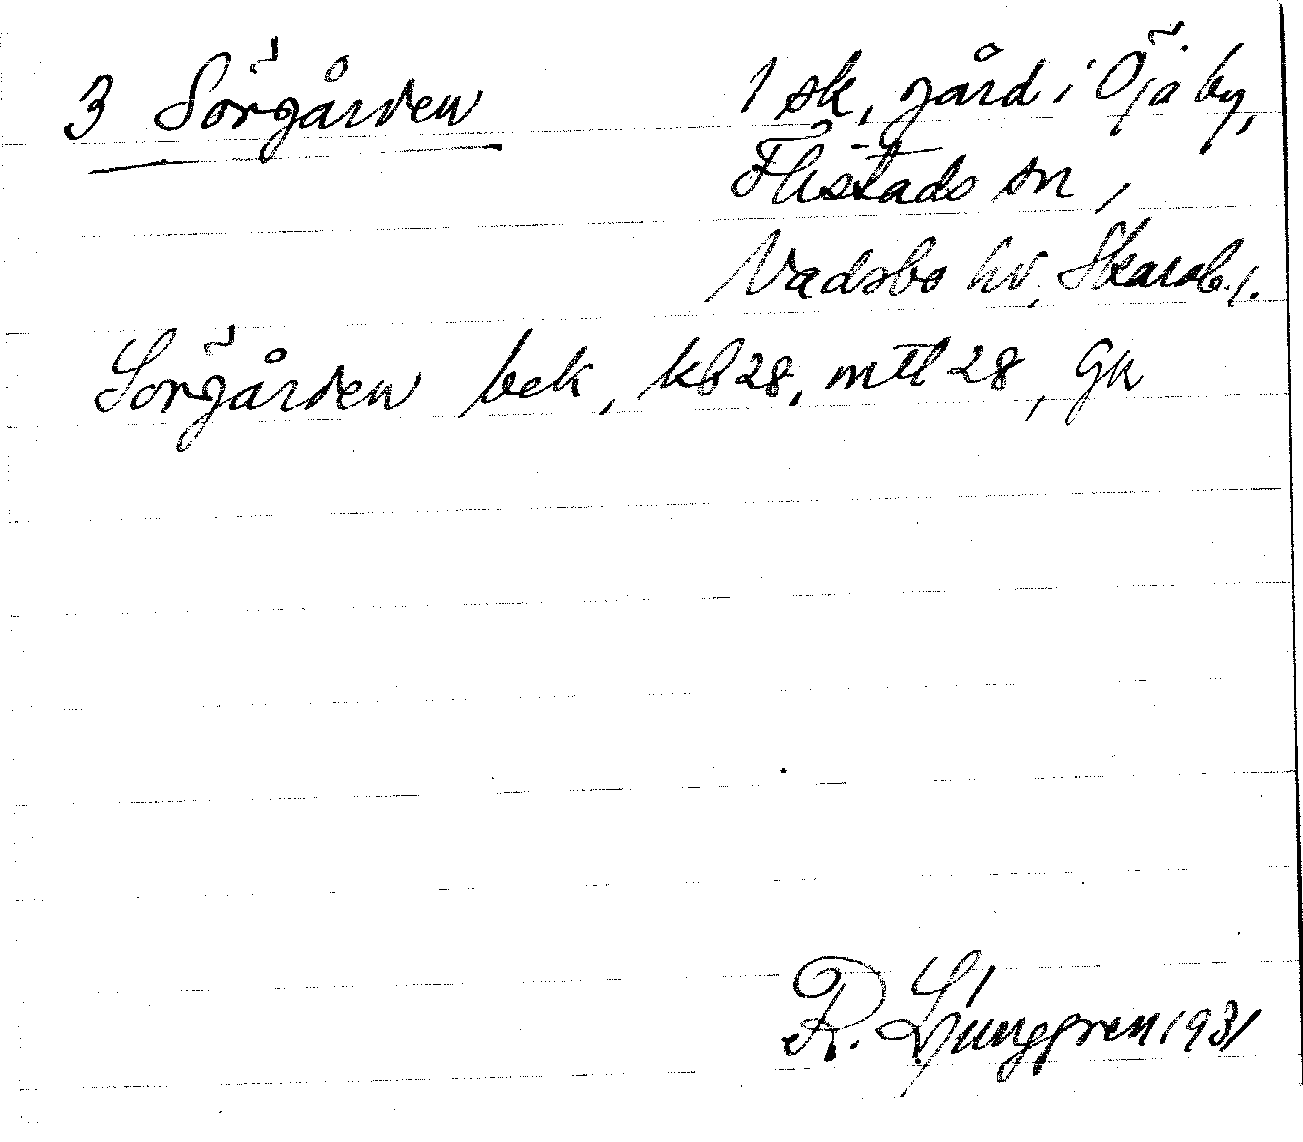 3 Sörgården
1 sk, gård i Öja by,
Flistads sn,
Vadsbo hd, Skarab. l.
Sörgården bek, kb 28, mtl 28, Gk
R. Ljunggren 1931